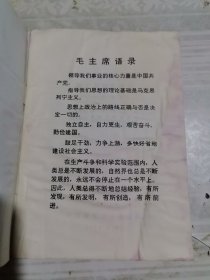 毛主席语录
领导我们事业的核心力量是中国共
产党。
指导我们思想的理论基础是马克思
列宁主义。
思想上政治上的路线正确与否是决
定一切的。
独立自主，自力更生，艰苦奋斗，
勤俭建国。
鼓足干劲，力争上游，多快好省地
建设社会主义。
在生产斗争和科学实验范围内，人
类总是不断发展的，自然界也总是不断
发展的，永远不会停止在一个水平上。
因此，人类总得不断地总结经验，有所
发现，有所发明，有所创造，有所前
进。